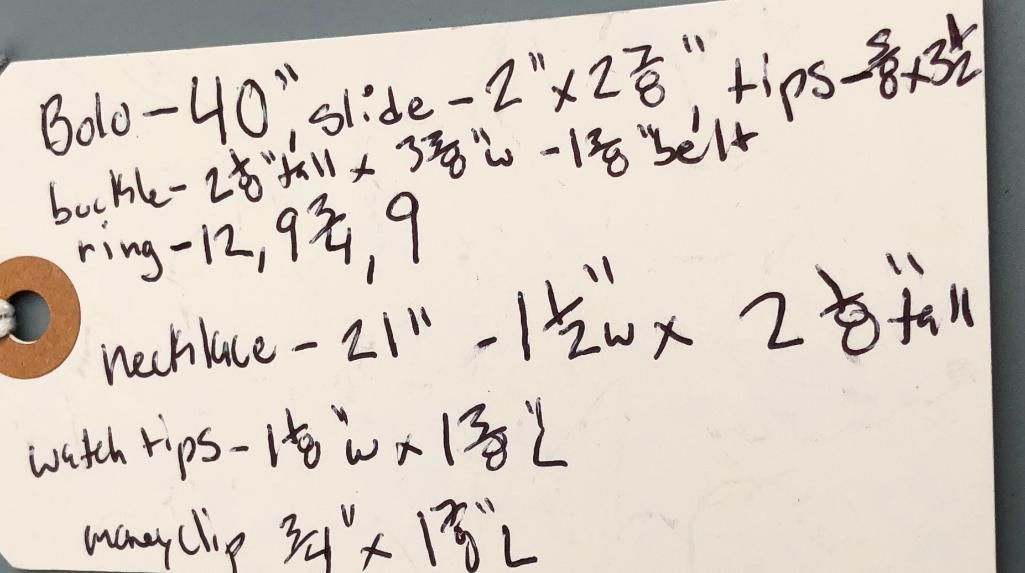 Bolo - 40", slide - 2" x 2 7/8", tips - 5/8 x 3 1/2
buckle - 2 1/8" tall x 3 3/8" w - 1 3/8" belt
ring - 12, 9 3/4, 9
necklace - 21" - 1 1/2" w x 2 1/8" tall
watch tips - 1 1/8" w x 1 3/8" L
money clip 3/4" x 1 7/8" L